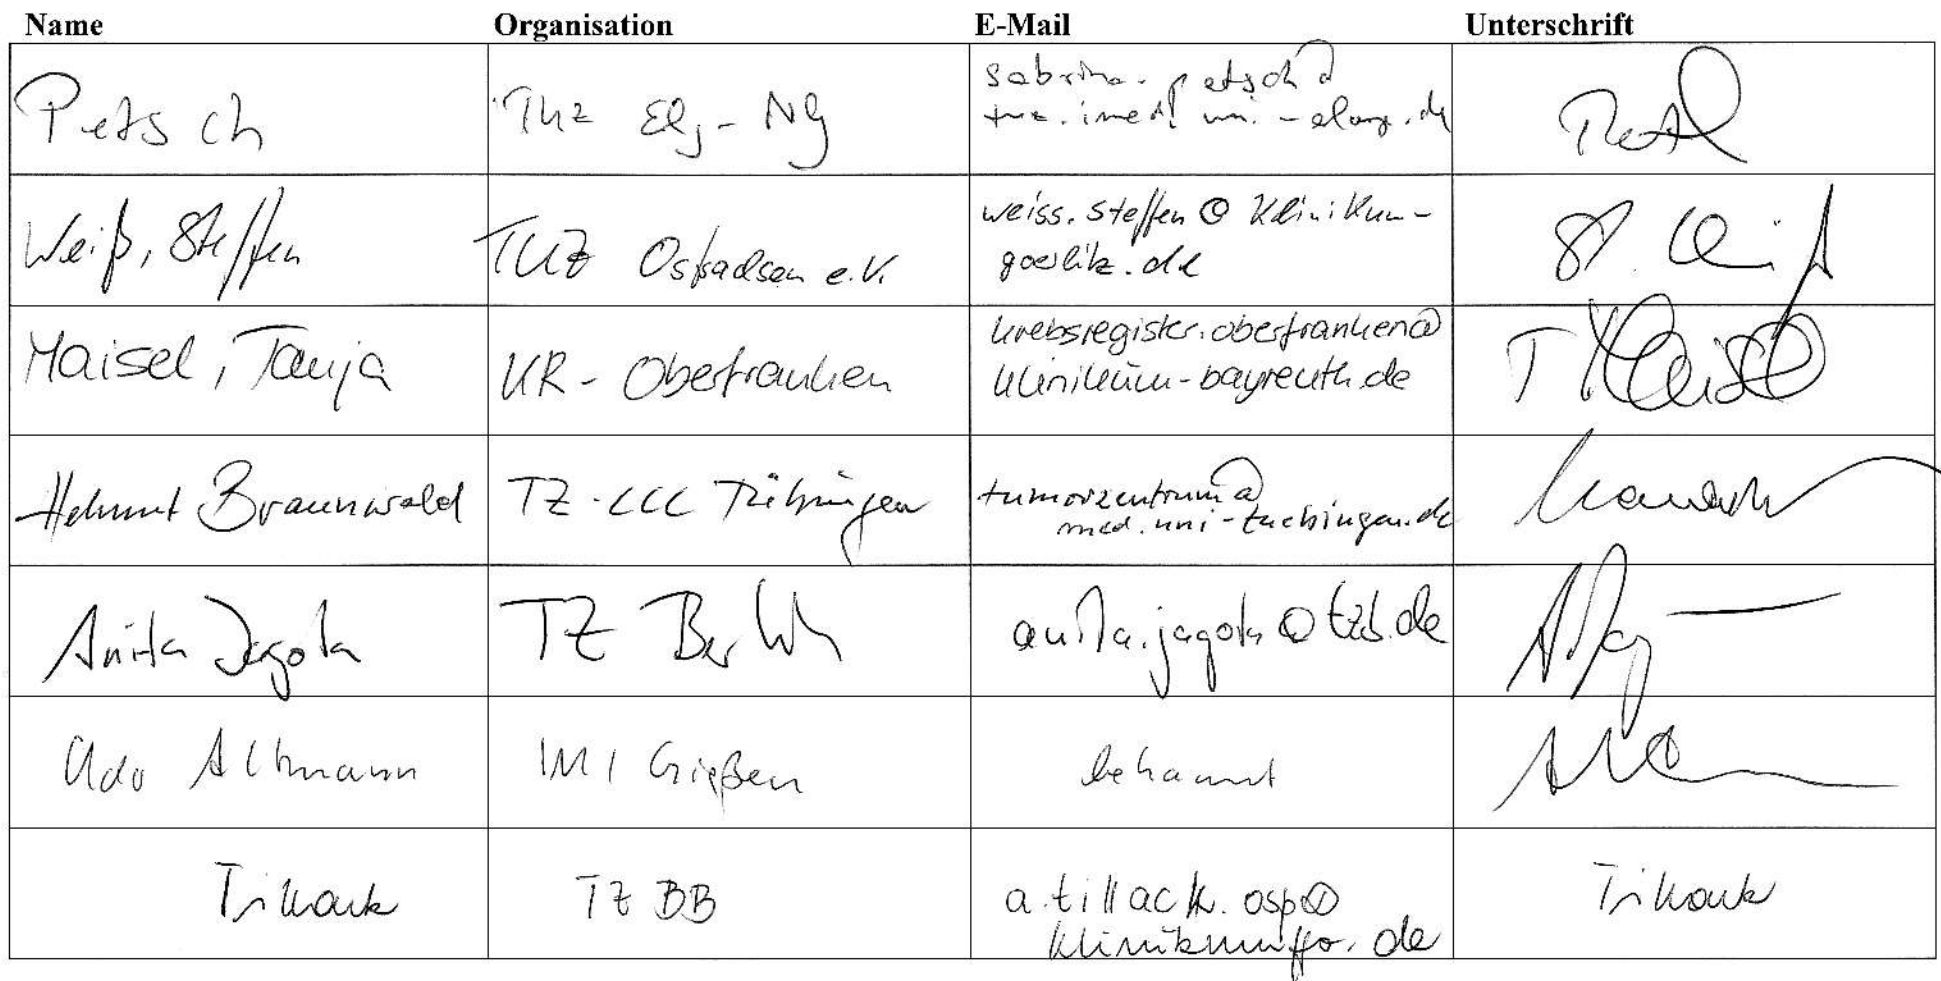 Name Organisation E-Mail Unterschrift
Petsch TUZ - sabrina.petsch@
Weiß, Steffen TUZ Ostsachsen e.V. weiss.steffen@klinikum-
goerlitz.de
Maisel, Tanja KR - Oberfranken krebsregister.oberfranken@
klinikum-bayreuth.de
Helmut Braunwald TZ-CCC Tübingen tumorzentrum@
med.uni-tuebingen.de
Anita Jagota TZ Berlin anita.jagota@tzb.de
Udo Altmann IMI Gießen bekannt
TZ BB a.tillack.osp@
klinikumffo.de